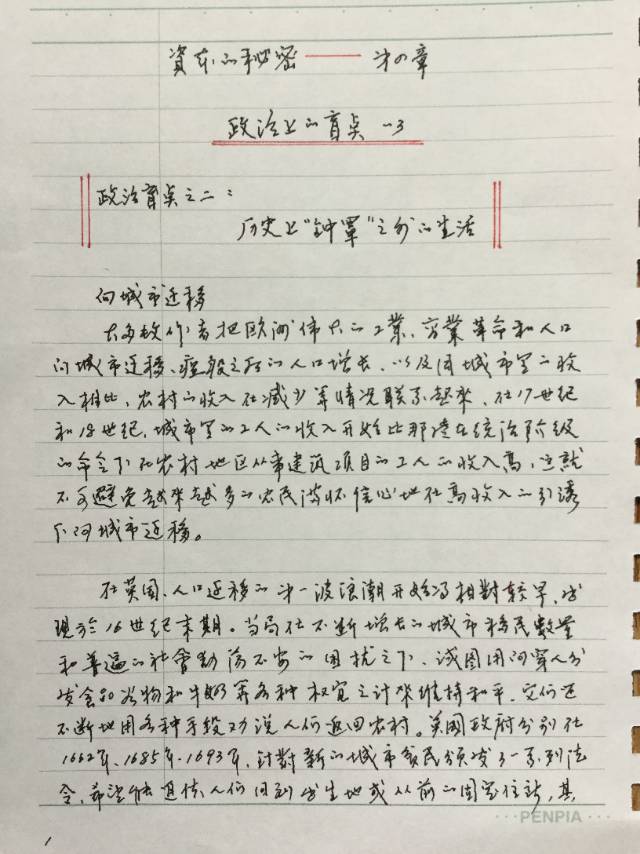 資本的秘密——第四章
政治上的盲点 -3
政治盲点之二：
历史上“钟罩”之外的生活
向城市迁移
大多数作者把欧洲伟大的工業、商業革命和人口
向城市迁移、瘟疫之后的人口增长、以及同城市里的收
入相比，农村的收入在减少等情况联系起来。在17世纪
和18世纪，城市里的工人的收入开始比那些在统治阶级
的命令下在农村地区从事建筑项目的工人的收入高，这就
不可避免越来越多的农民满怀信心地在高收入的引诱
下向城市迁移。
在英国，人口迁移的第一波浪潮开始得相對较早，出
現於16世纪末期。当局在不断增长的城市移民數量
和普遍的社會動荡不安的困扰之下，试图用向窮人分
发食品谷物和牛奶等各种权宜之计來维持和平，它们还
不断地用各种手段劝说人们返回农村。英國政府分别在
1662年、1685年、1693年，针對新的城市移民颁发了一系列法
令，希望能遣使人们回到出生地或从前的固定住所，其
1
PENPIA